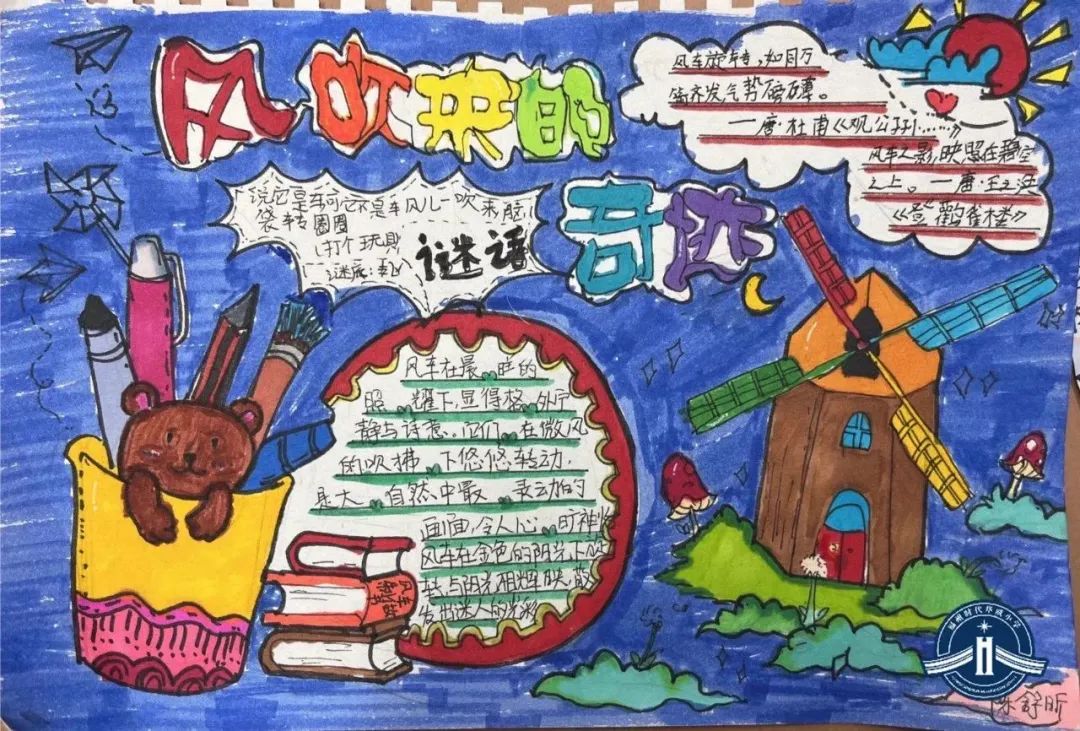 风吹来的
奇迹
风车旋转，如同万
箭齐发气势磅礴。
—唐·杜甫《观公孙……》
风车之影，映照在碧空
之上。—唐·王之涣
《登鹳雀楼》
说它是车可它不是车风儿一吹来脑
袋转圈圈
（打个玩具
谜底：
谜语
风车在晨 的
照 耀下，显得格 外宁
静与诗意。它们 在微风
的吹拂 下悠悠转动
是大 自然中最 灵动的
画面，令人心 旷神怡
风车在金色的阳光下旋
转与阳光相辉映散
发出迷人的光彩
风车的
福州时代华威小学
舒昕